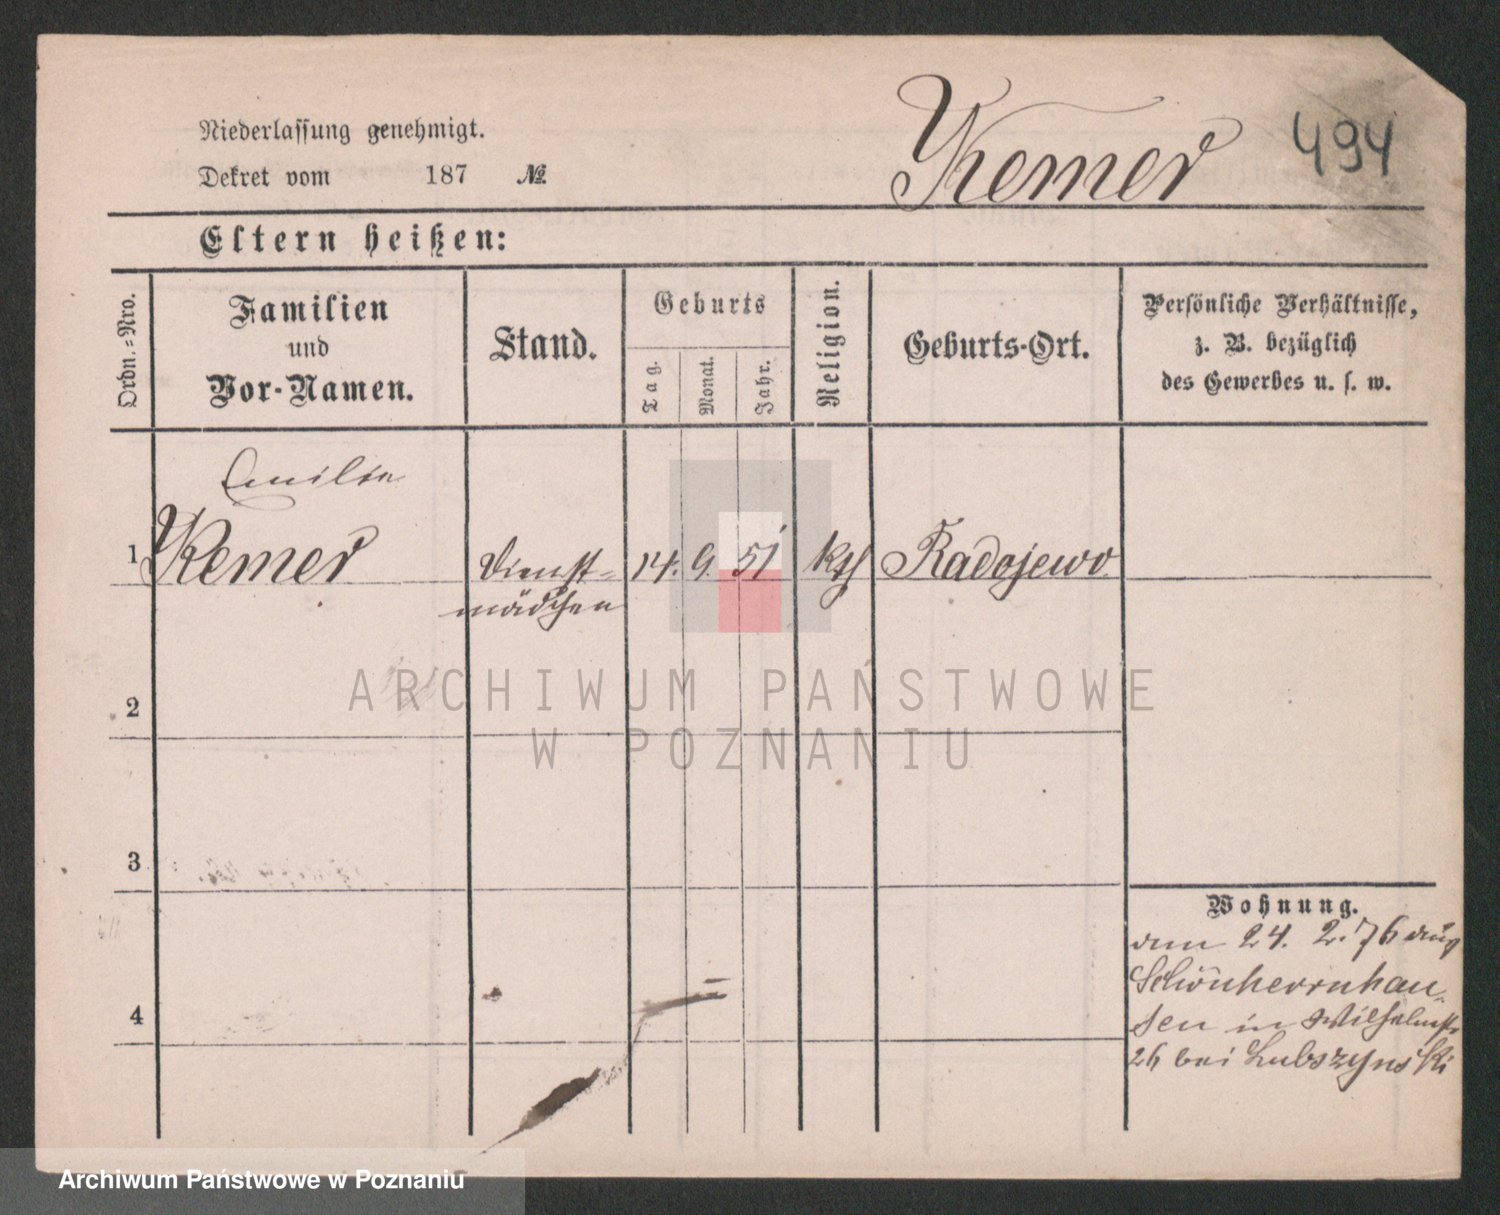 Niederlassung genehmigt.
Dekret vom 187 №
Kemer
494
Eltern heißen:
Ordn.-Nro.
Familien
und
Vor-Namen.
Stand.
Geburts
Tag.
Monat.
Jahr.
Religion.
Geburts-Ort.
Persönliche Verhältnisse,
z. B. bezüglich
des Gewerbes u. s. w.
Emilie
1 Kemer Dienst- 14. 9. 51 kth Radojewo
mädchen
ARCHIWUM PAŃSTWOWE
W POZNANIU
2
3
4
Wohnung.
am 24. 2. 76 aus
Schönherrnhau-
sen in Wilhelmstr
26 bei Lubszynski
Archiwum Państwowe w Poznaniu